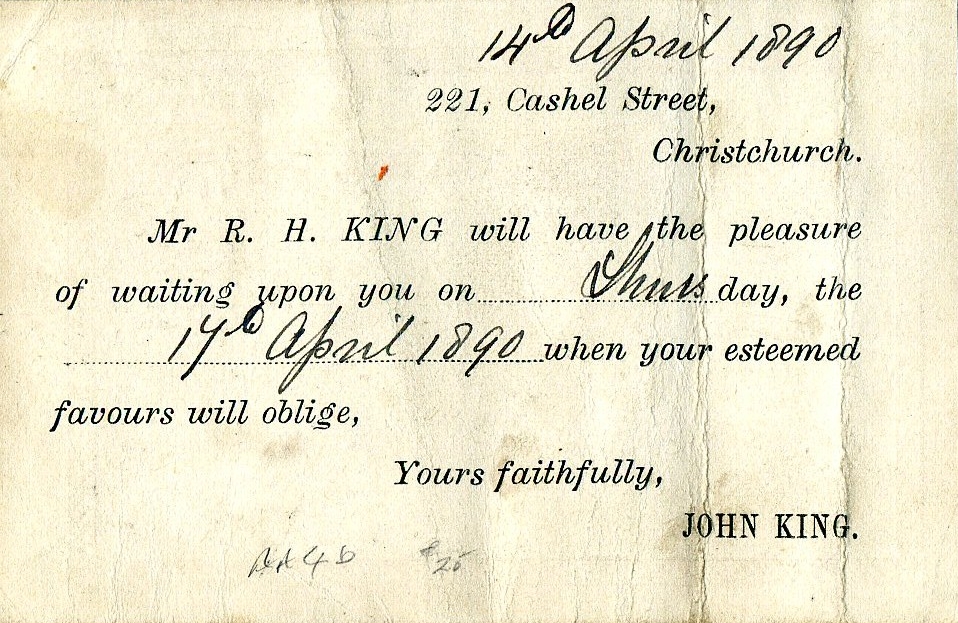 14th April 1890
221, Cashel Street,
Christchurch.
Mr R. H. KING will have the pleasure
of waiting upon you on Thurs day, the
17th April 1890 when your esteemed
favours will oblige,
Yours faithfully,
JOHN KING.